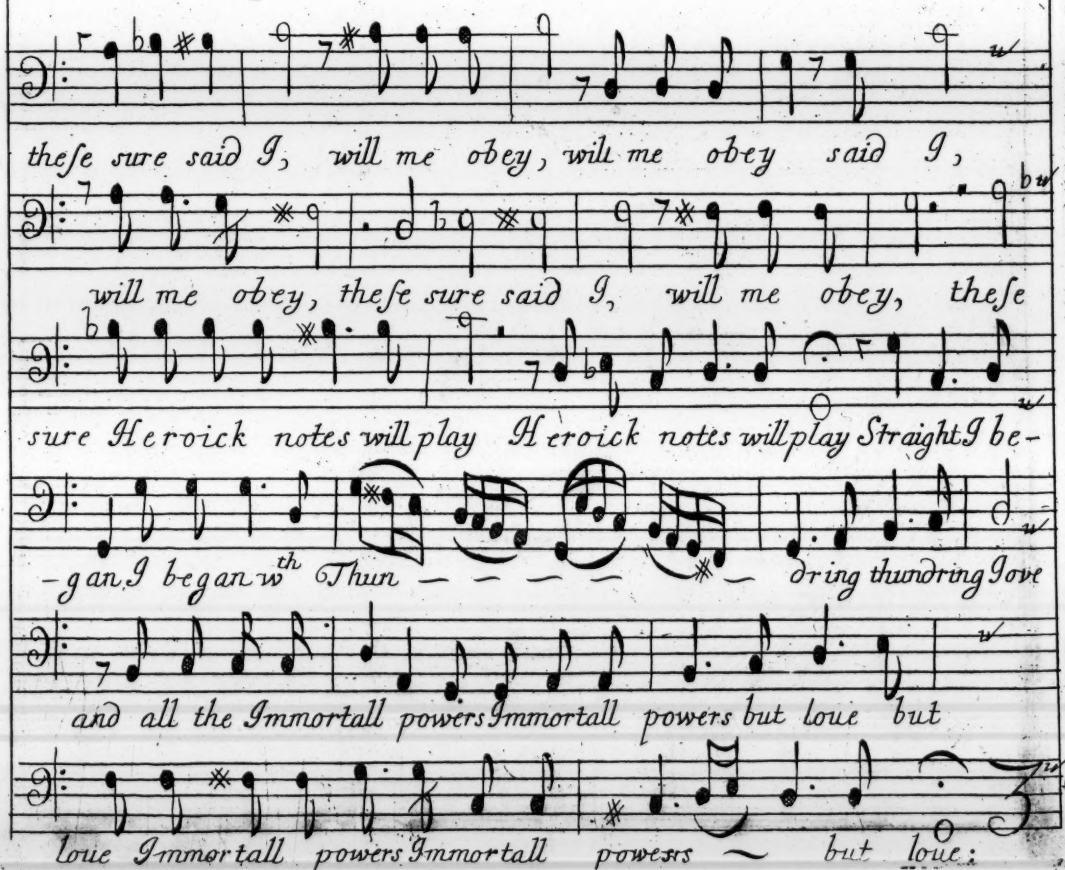 theſe sure said I, will me obey, will me obey said I,
will me obey, theſe sure said I, will me obey, theſe
sure Heroick notes will play Heroick notes will play Straight I be-
-gan I began wth Thun - - - - - dring thundring Jove
and all the Immortall powers Immortall powers but loue but
loue Immortall powers Immortall powers - but loue: